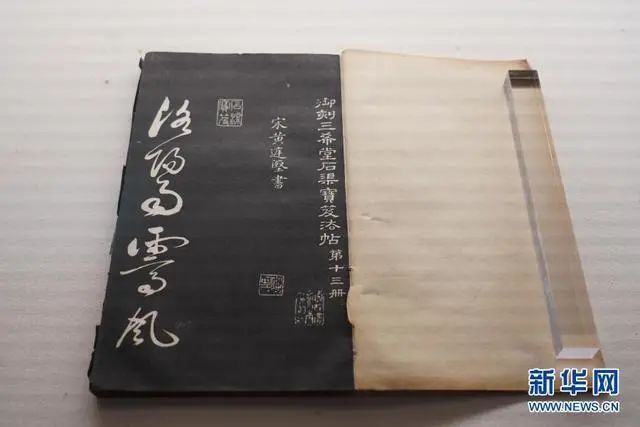 御刻三希堂石渠寶笈法帖 第十三册
宋黄庭堅書
洛陽雨霽風
新华网
WWW.NEWS.CN